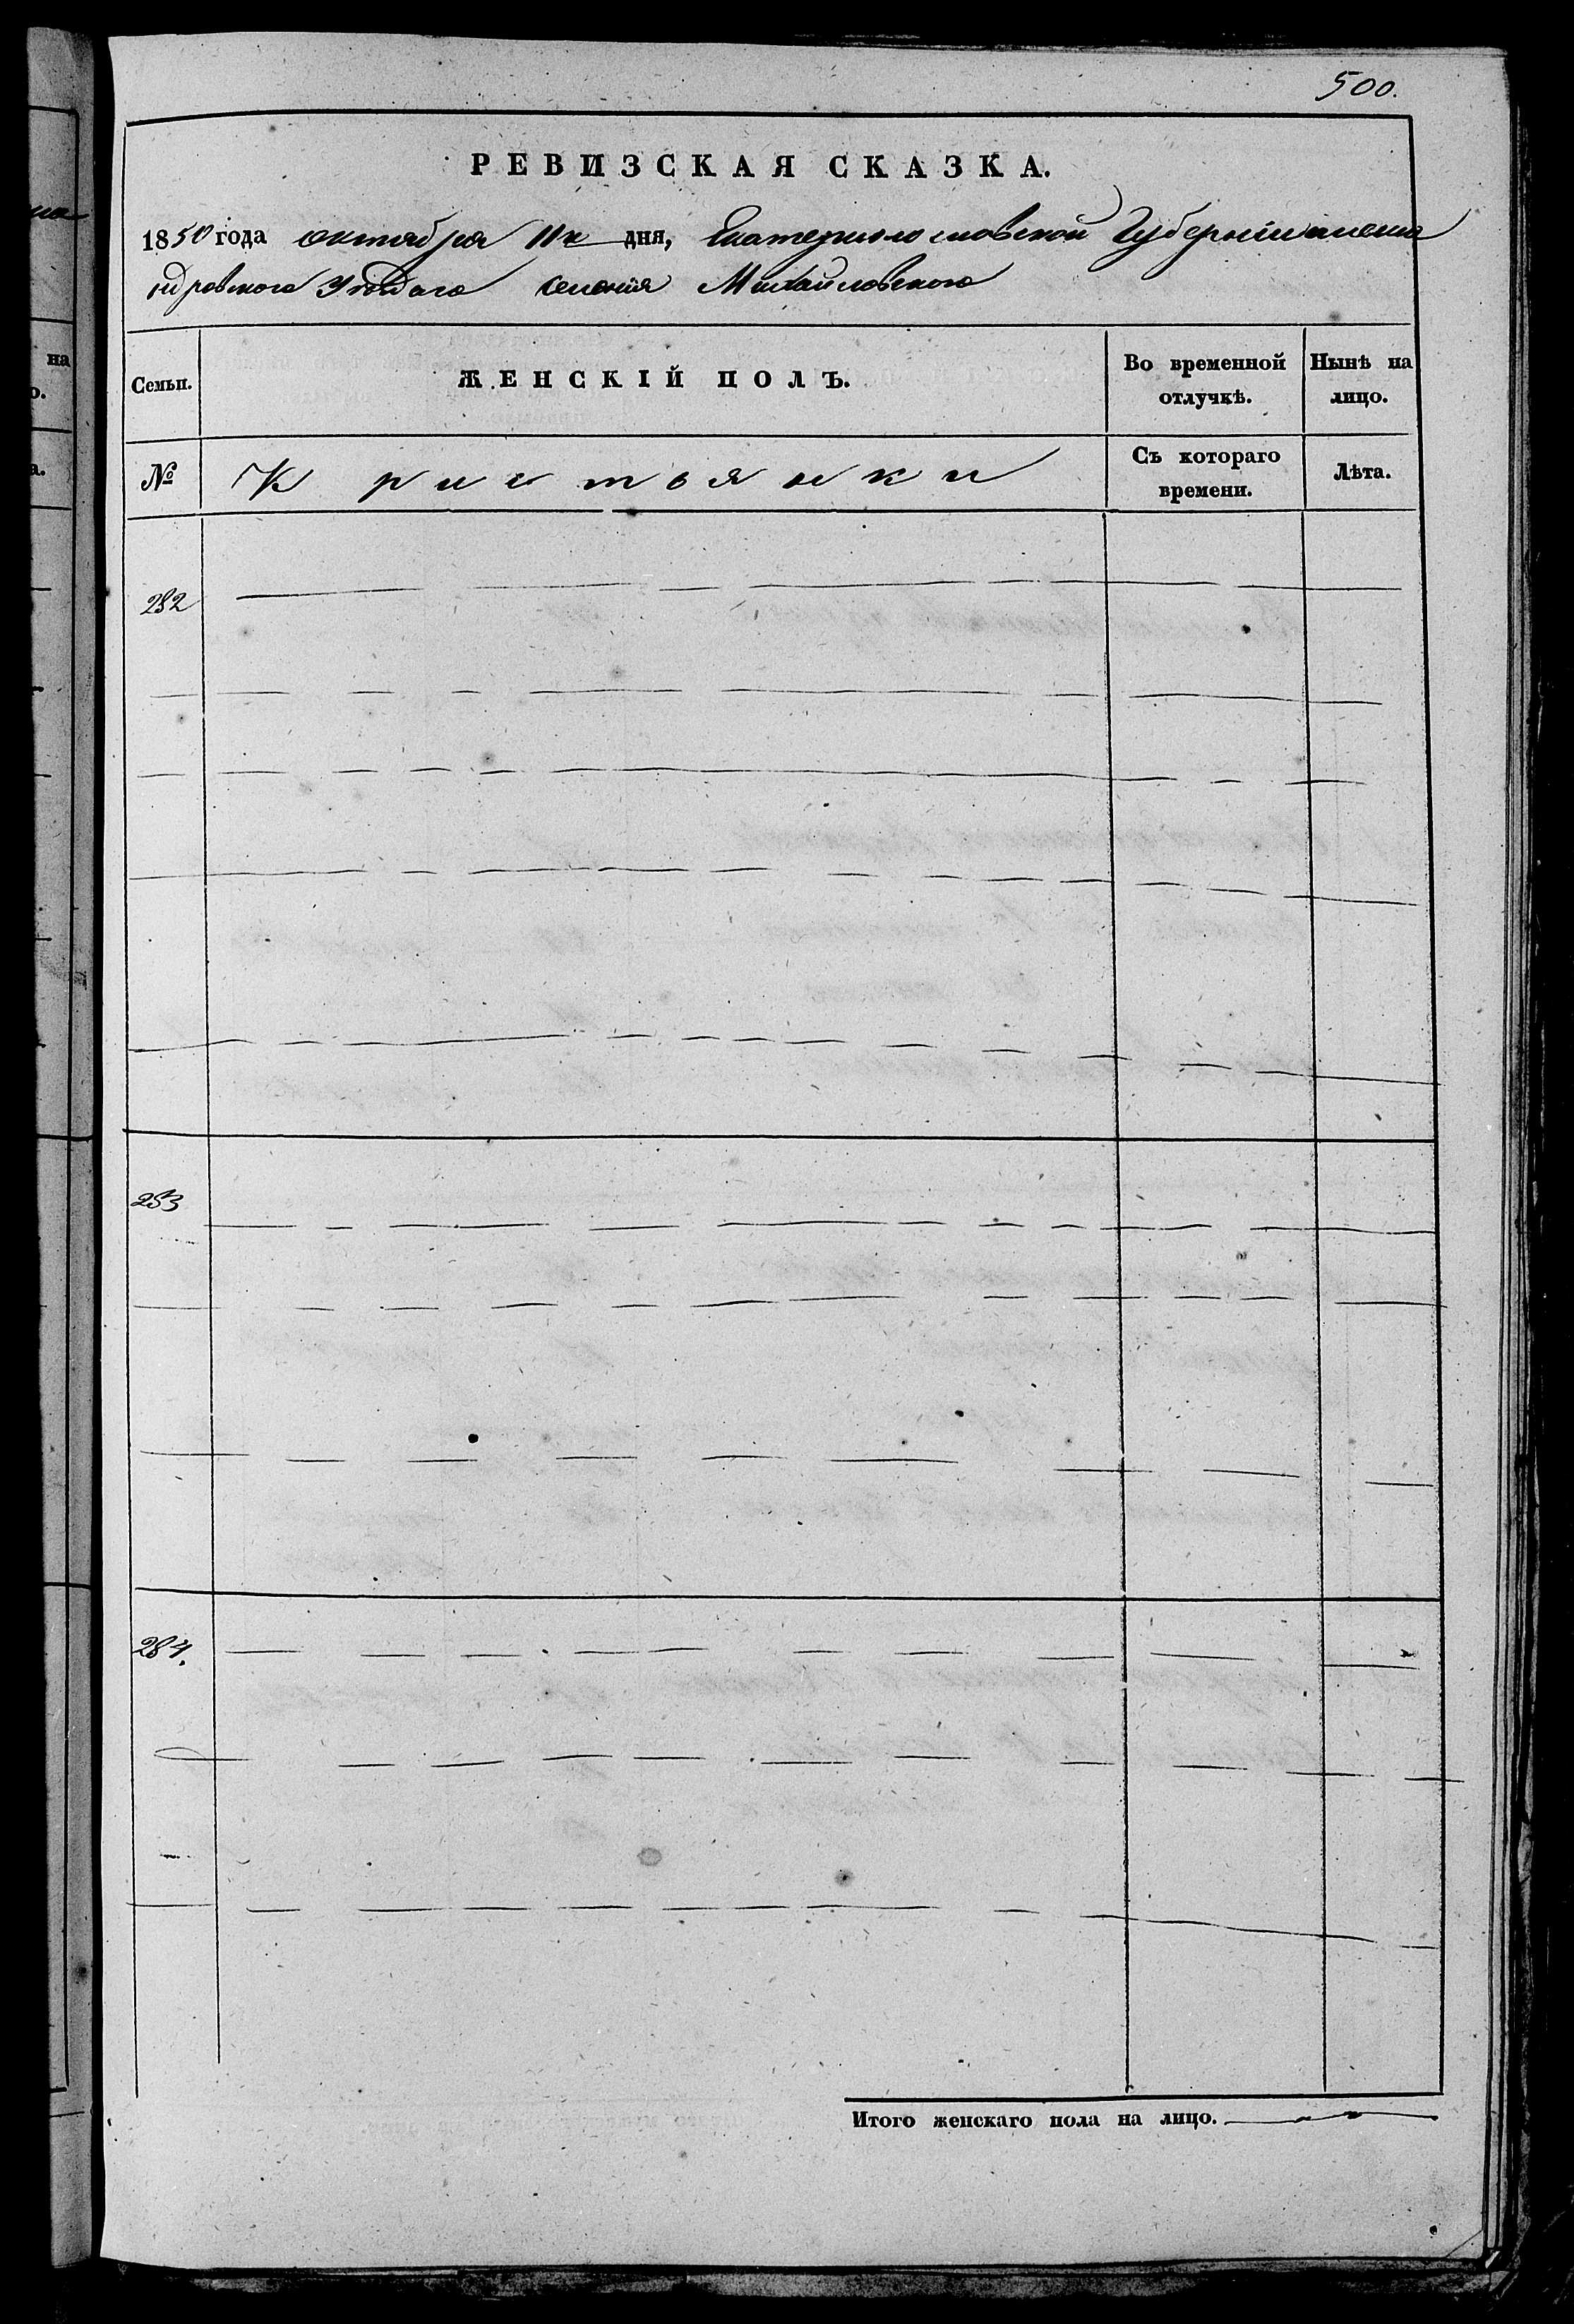 500.
РЕВИЗСКАЯ СКАЗКА.
1850 года октября 11го дня, Екатеринославской Губернии Алекса
ндровского Уезда селения Михайловского
Семьи.
ЖЕНСКІЙ ПОЛЪ.
Во временной отлучкѣ.
Нынѣ на лицо.
№
Кристьянки
Съ котораго времени.
Лѣта.
282
283
284.
Итого женскаго пола на лицо.